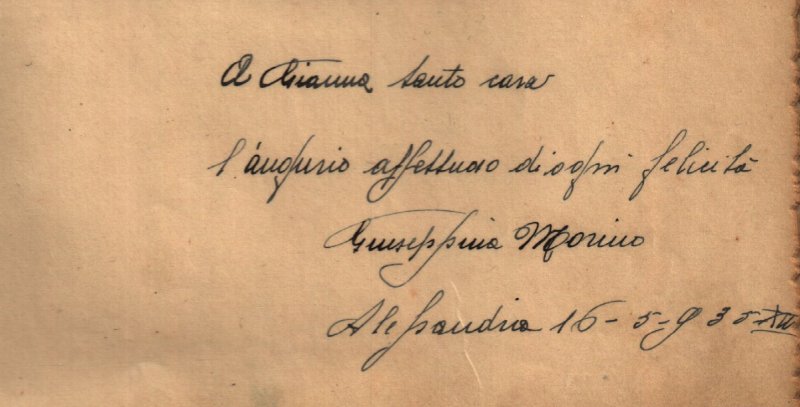 A Gianna tanto cara
l'augurio affettuoso di ogni felicità
Giuseppina Morino
Alessandria 16-5-935-XIII